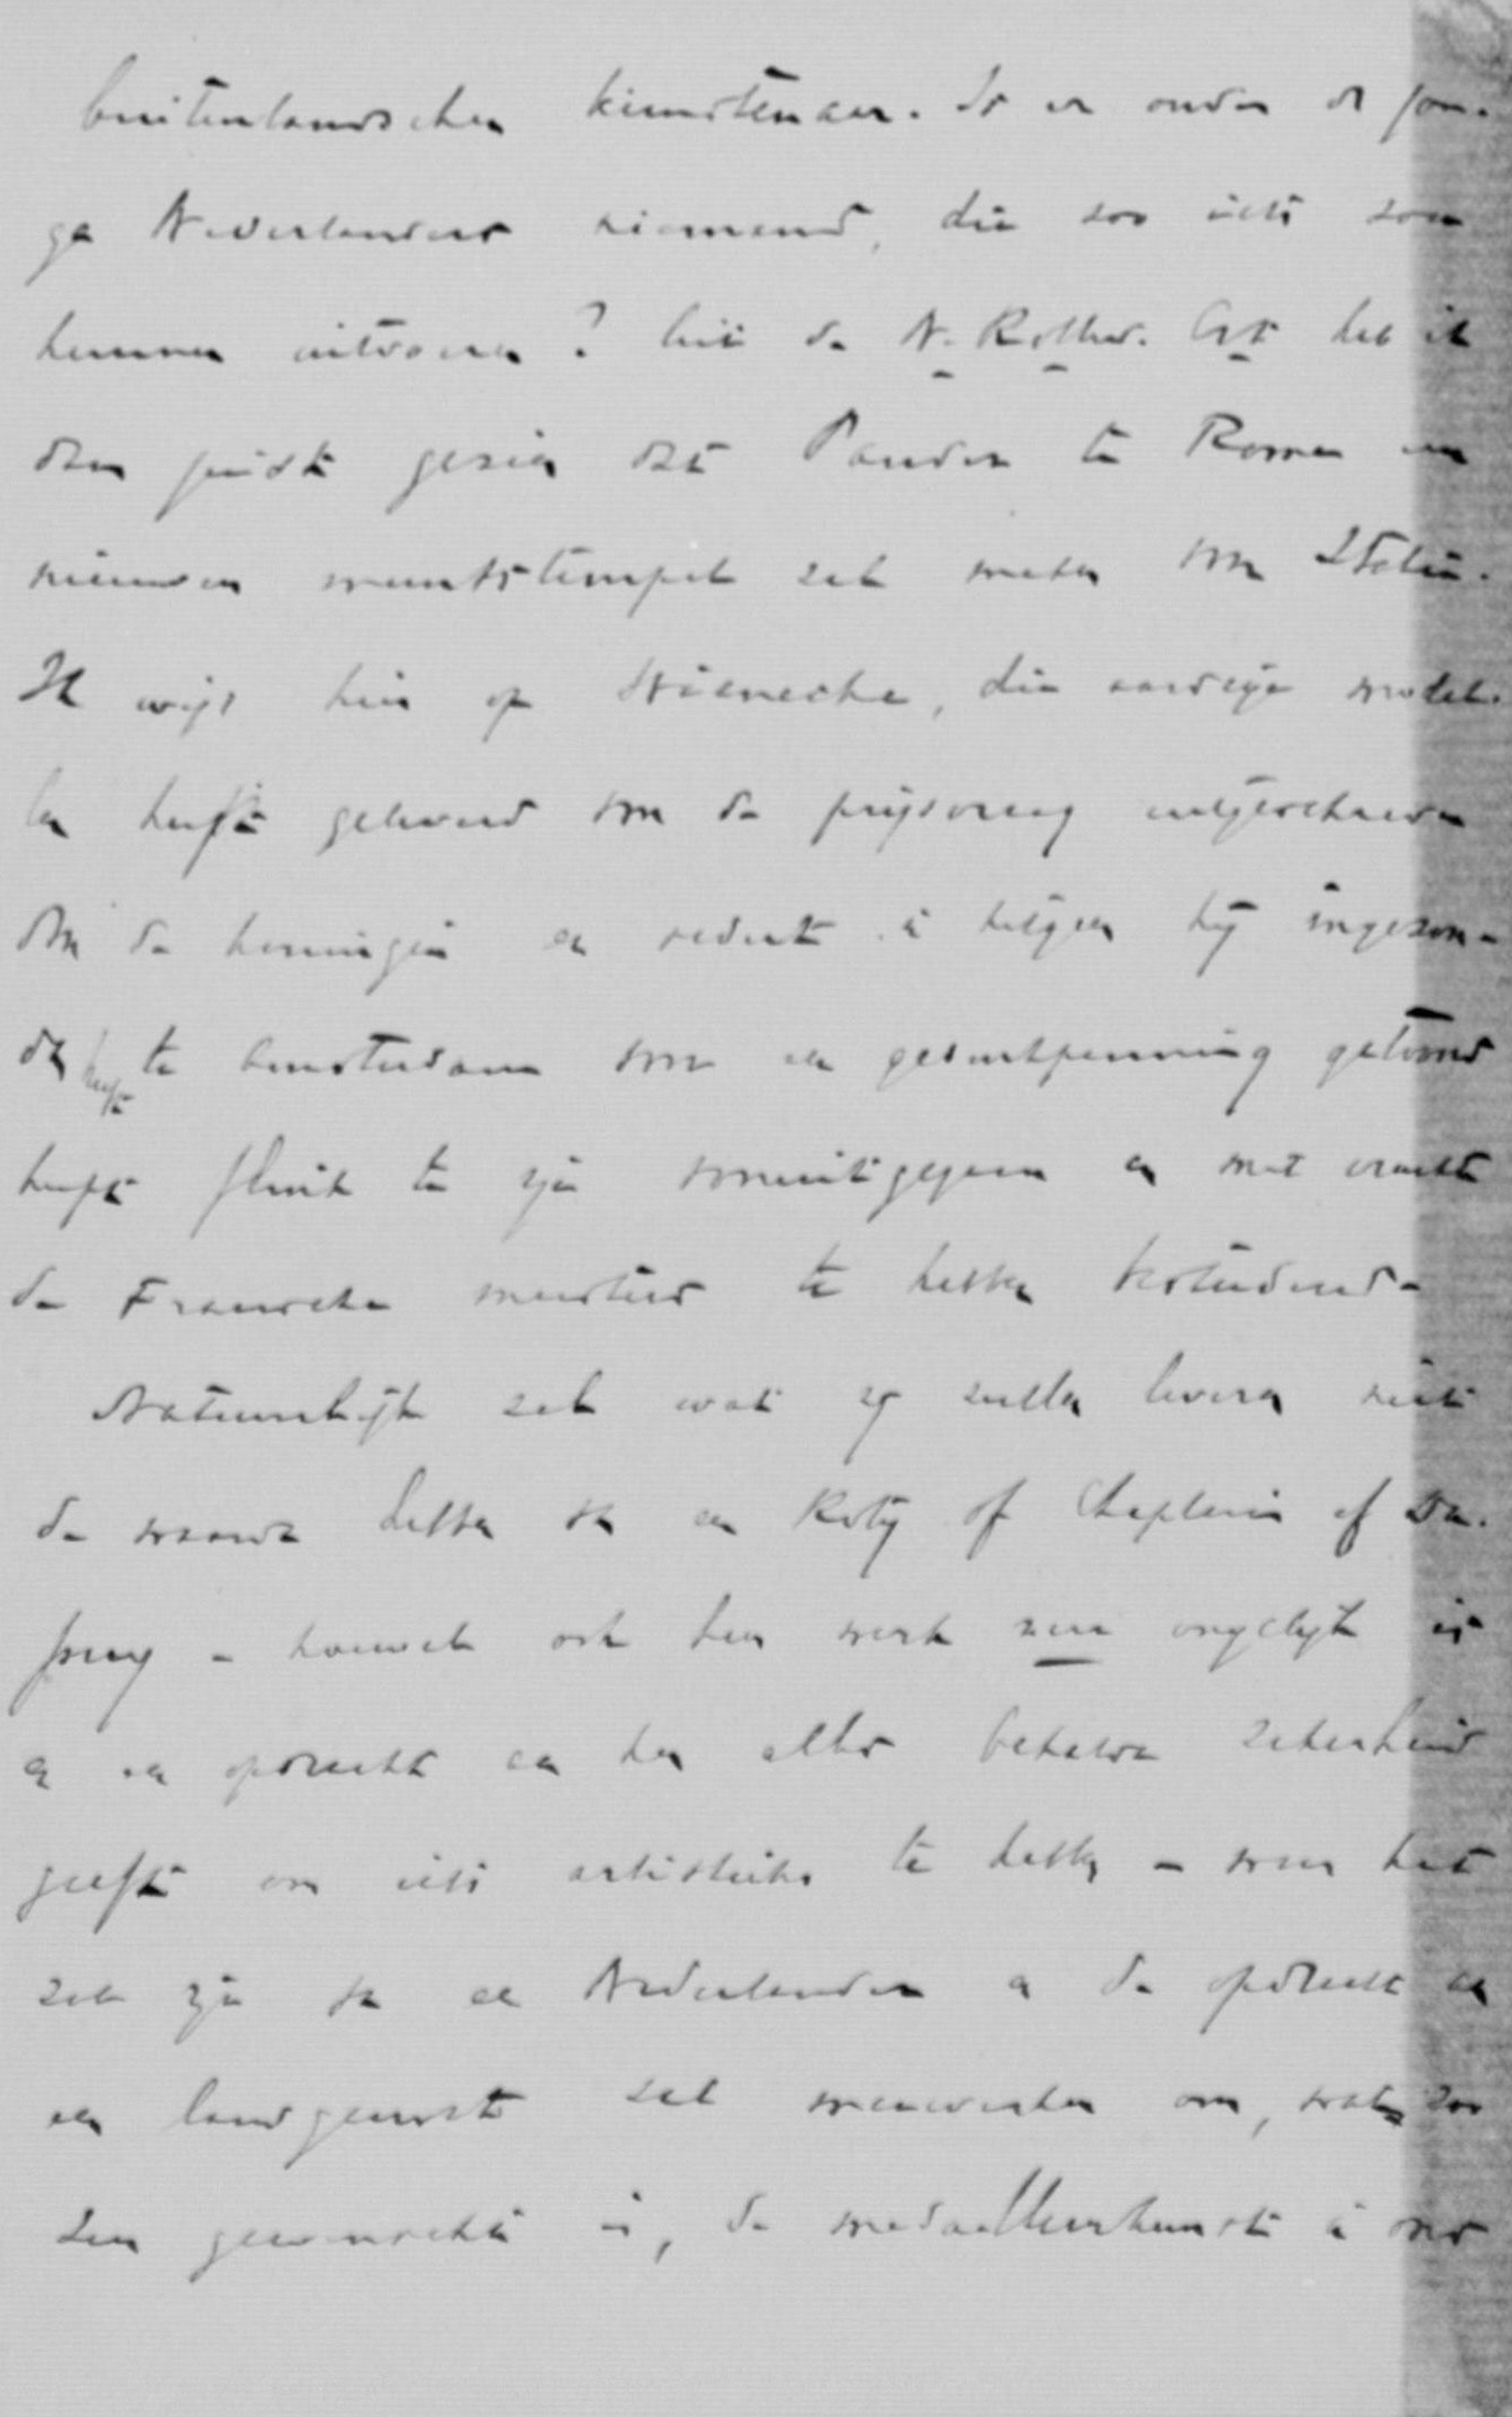 buitenlandschen kunstenaar. Is er onder de jon-
ge Nederlanders niemand, die zoo iets zou
kunnen uitvoeren? Uit de N. Rotterd. Ct heb ik
den juist gezien dat Pander te Rome een
nieuwen muntstempel zal maken voor Italië.
Ik wijs hier op Wienecke, die aardige model-
len heeft geleverd voor de prijsvraag uitgeschreven
door de koningin en sedert in hetgeen hij ingezon-
den heeft te Amsterdam voor een gedenkpenning getoond
heeft flink te zijn vooruitgegaan en met vrucht
de Fransche meesters te hebben bestudeerd.
Natuurlijk zal wat zij zullen leveren niet
de waarde hebben van een Roty of Chaplain of Du-
puy – hoewel ook hun werk zeer ongelijk is
en een opdracht aan hen alles behalve zekerheid
geeft om iets artistieks te hebben – maar het
zal zijn van een Nederlander en de opdracht aan
een landgenoot zal meewerken om, wat zoo
zeer gewenscht is, de medailleurkunst in ons